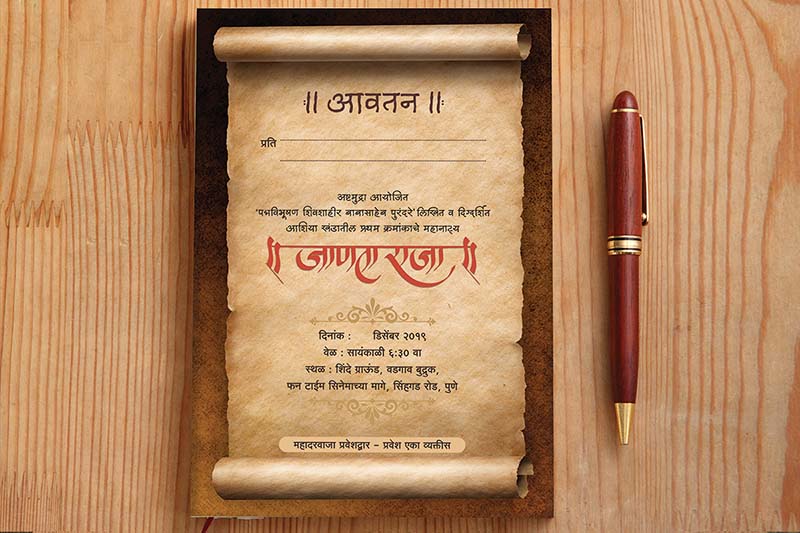 ॥ आवतन ॥
प्रति
अष्टमुद्रा आयोजित
'पद्मविभूषण शिवशाहीर बाबासाहेब पुरंदरे' लिखित व दिग्दर्शित
आशिया खंडातील प्रथम क्रमांकाचे महानाट्य
॥ जाणता राजा ॥
दिनांक : डिसेंबर २०१९
वेळ : सायंकाळी ६:३० वा
स्थळ : शिंदे ग्राऊंड, वडगाव बुद्रुक,
फन टाईम सिनेमाच्या मागे, सिंहगड रोड, पुणे
महादरवाजा प्रवेशद्वार - प्रवेश एका व्यक्तीस